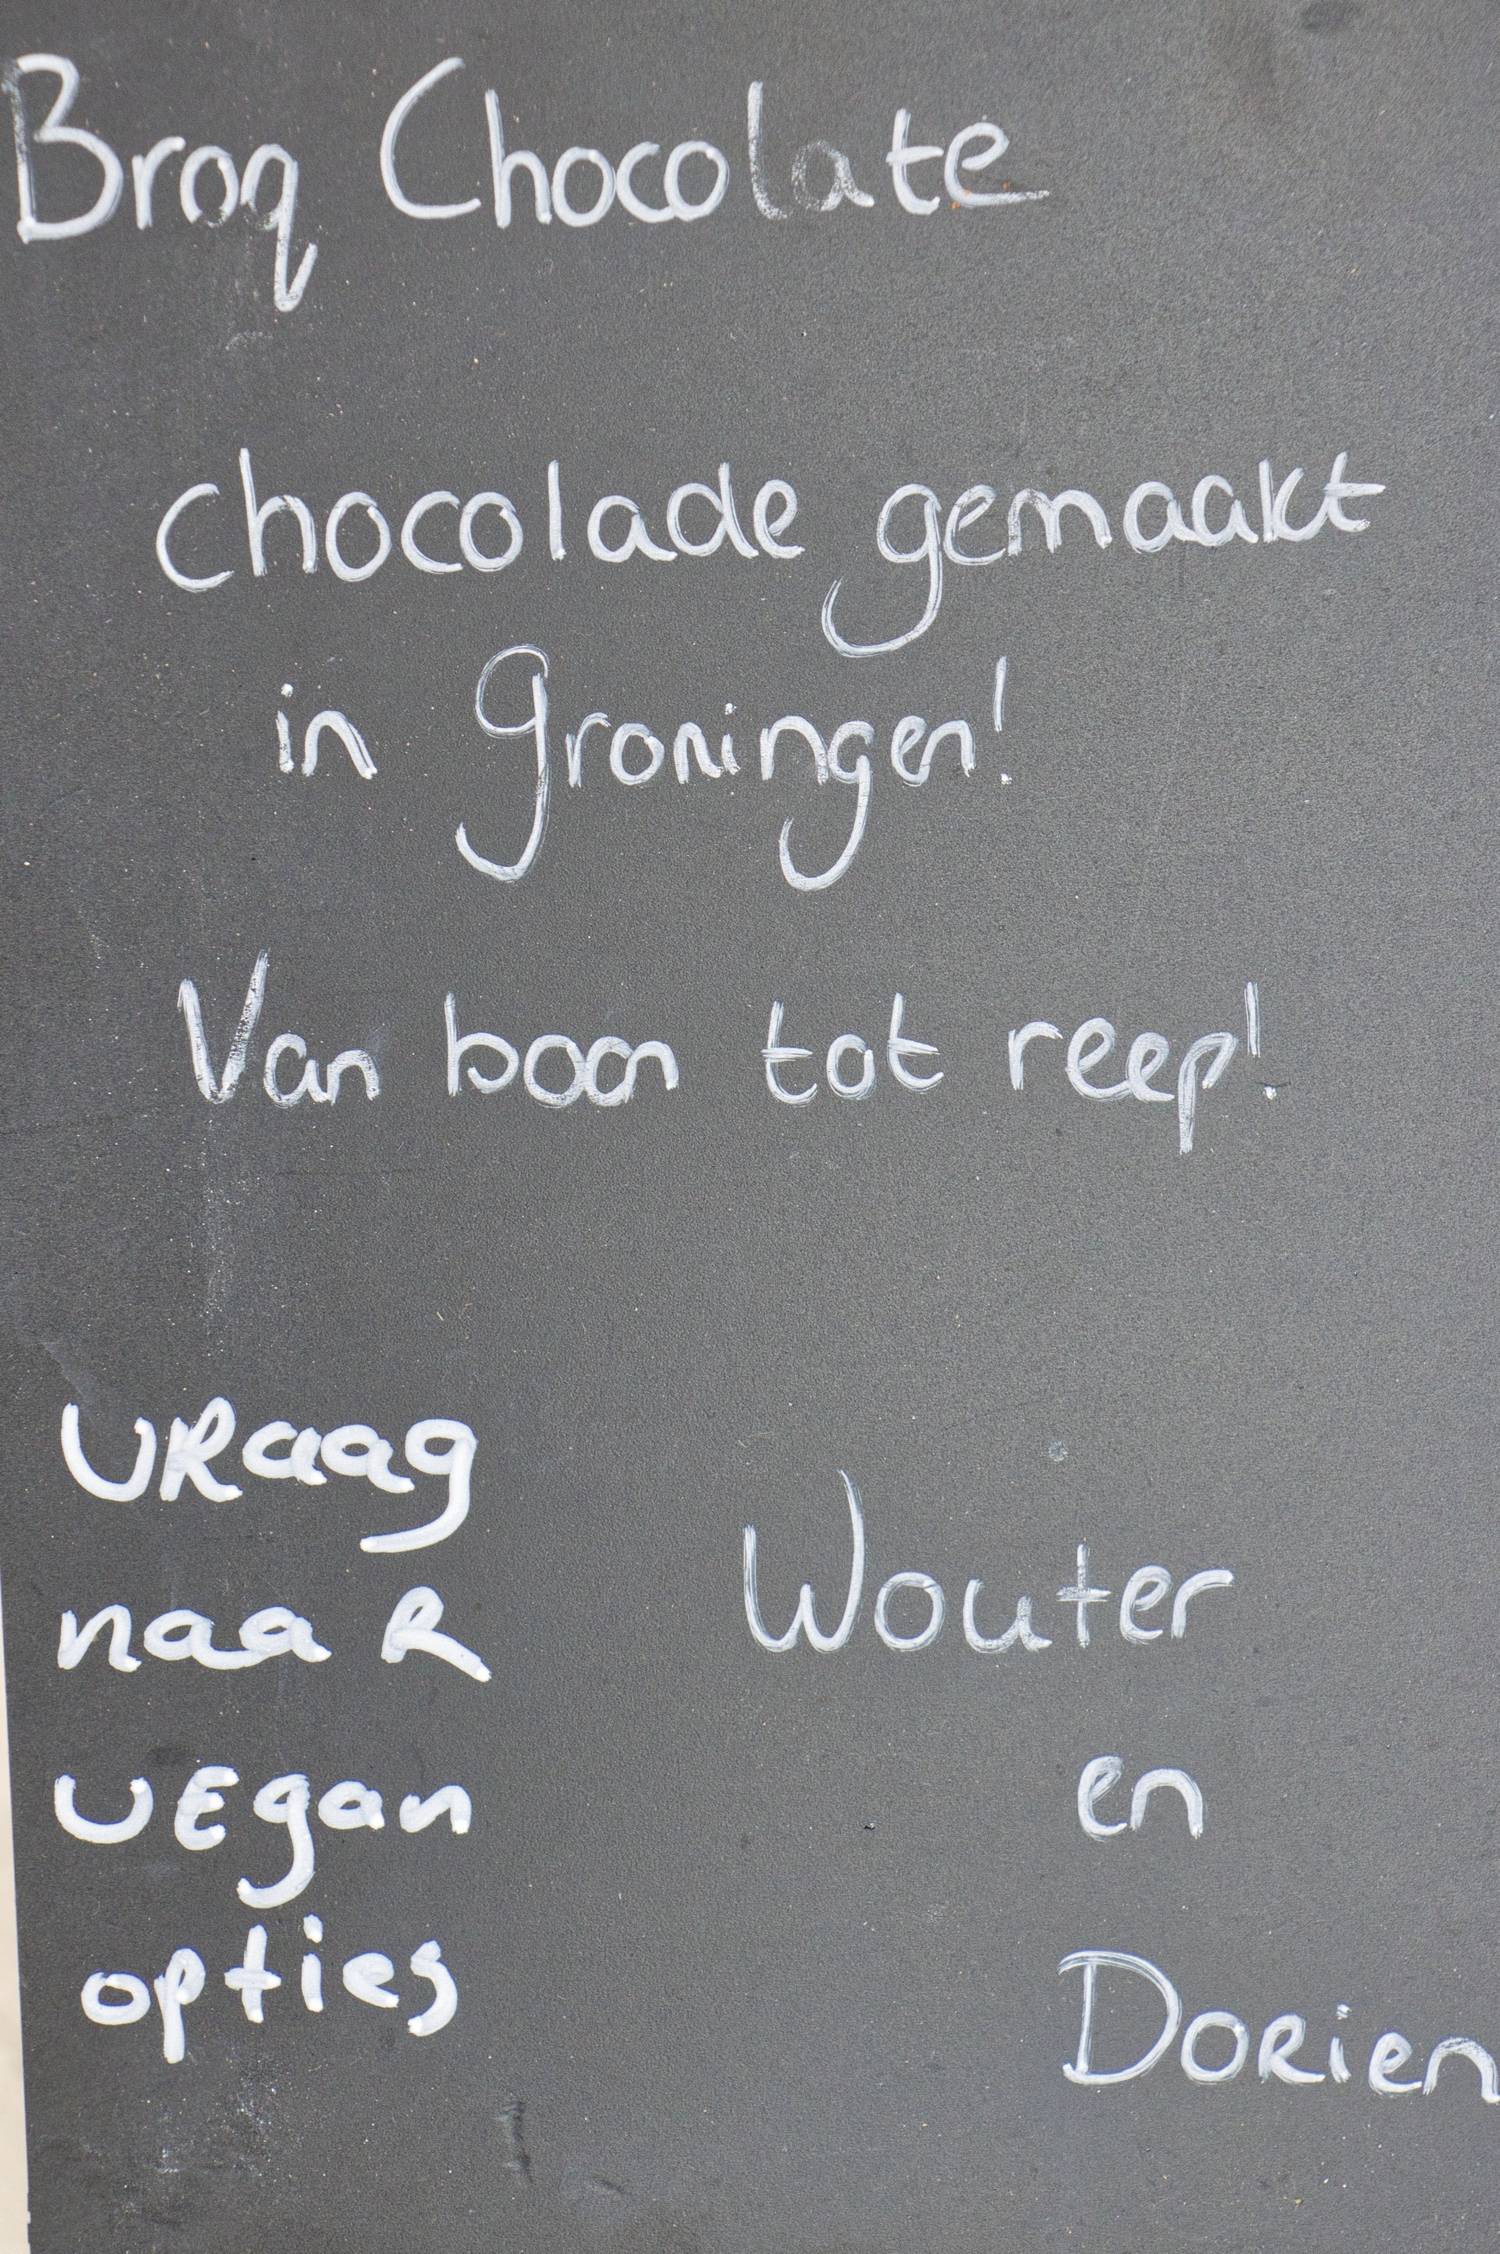 Broq Chocolate
chocolade gemaakt
in Groningen!
Van boon tot reep!
VRaag
naaR
vEgan
opties
Wouter
en
DoRien